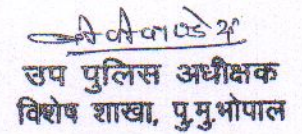 उप पुलिस अधीक्षक
विशेष शाखा, पु.मु.भोपाल